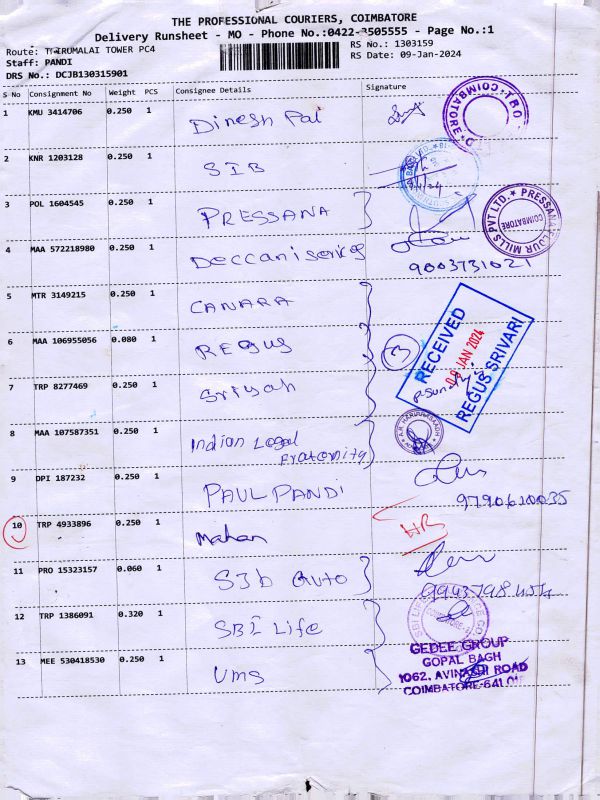 THE PROFESSIONAL COURIERS, COIMBATORE
Delivery Runsheet - MO - Phone No.:0422-3505555 - Page No.:1
Route: THIRUMALAI TOWER PC4
Staff: PANDI
DRS No.: DCJB130315901
RS No.: 1303159
RS Date: 09-Jan-2024
S No Consignment No Weight PCS Consignee Details Signature
1 KMU 3414706 0.250 1 Dinesh Pai
COIMBATORE
2 KNR 1203128 0.250 1 SIB
3 POL 1604545 0.250 1 PRESSANA
PRESSANA FLOUR MILLS PVT LTD.
COIMBATORE
4 MAA 572218980 0.250 1 Deccan iservices
9003731021
5 MTR 3149215 0.250 1 CANARA
6 MAA 106955056 0.080 1 REGUS
3
RECEIVED
09 JAN 2024
REGUS SRIVARI
7 TRP 8277469 0.250 1 Sriyah
8 MAA 107587351 0.250 1 Indian Legal
Fraternity
9 DPI 187232 0.250 1 PAUL PANDI
9790610035
10 TRP 4933896 0.250 1 Mahan
11 PRO 15323157 0.060 1 SJb Auto
12 TRP 1386091 0.320 1 SBI Life
13 MEE 530418530 0.250 1 UMS
GEDEE GROUP
GOPAL BAGH
1062, AVINASHI ROAD
COIMBATORE-641